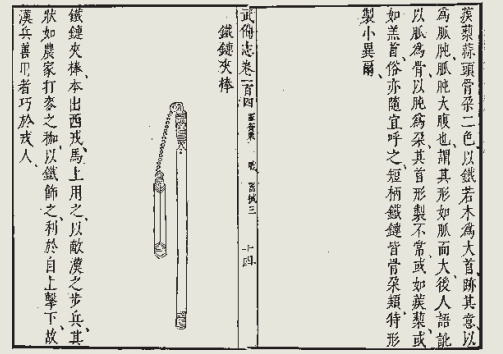 蒺藜蒜頭骨朶二色以鐵若木爲大首跡其意以
爲胍肫胍肫大腹也謂其形如胍而大後人語訛
以胍爲骨以肫爲朶其首形製不常或如蒺藜或
如羔首俗亦隨宜呼之短柄鐵鏈皆骨朶類特形
製小異爾
武備志卷一百四
器械三
十四
鐵鏈夾棒
鐵鏈夾棒本出西戎馬上用之以敵漢之步兵其
狀如農家打麥之枷以鐵飾之利於自上擊下故
漢兵善用者巧於戎人